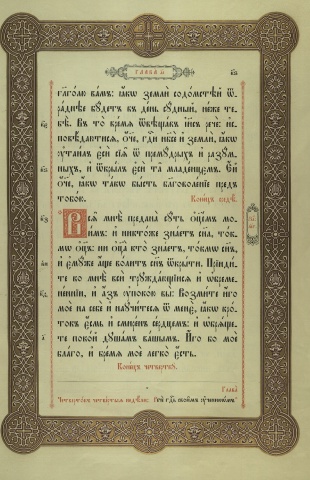 ГЛАВА а҃і
глаголю вамъ: ꙗкѡ земли содомстѣй ѿ-
раднѣе бꙋдетъ въ день сꙋдный, неже те-
бѣ. Въ то время ѿвѣщавъ і҆и҃съ рече: и҆с-
повѣдаютися, ѻ҆́ч҃е, гдⷭ҇и нб҃се и҆ земли, ꙗкѡ
ᲂу҆таилъ є҆си сїѧ ѿ премꙋдрыхъ и҆ разꙋм-
ныхъ, и҆ ѿкрылъ є҆си та младенцємъ. Ей
ѻ҆́ч҃е, ꙗкѡ такѡ бысть благоволенїе пред
тобою. Конецъ
Всѧ мнѣ предана сꙋть ѻ҆ц҃емъ мо-
имъ: и҆ никтоже знаетъ сн҃а, ток-
мѡ ѻ҆ц҃ъ: ни ѻ҆ц҃а кто знаетъ, токмѡ сн҃ъ,
и҆ є҆мꙋже аще волитъ сн҃ъ ѿкрыти. Прїиди-
те ко мнѣ вси трꙋждающїисѧ и҆ ѡбреме-
неннїи, и҆ а҆зъ ᲂу҆покою вы: Возмите и҆го
мое на себѣ и҆ наꙋчитесѧ ѿ менє, ꙗкѡ кро-
токъ є҆смь и҆ смиренъ сердцемъ: и҆ ѡбрѧще-
те покой дꙋшамъ вашымъ. И҆го бо мое
благо, и҆ бремѧ мое легко є҆сть.
Конецъ четвертку
Глава
Четвертокъ четвертыѧ недѣли: